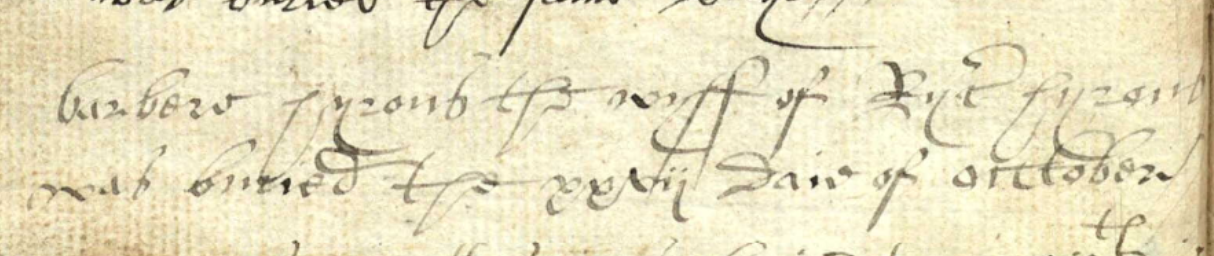 was buried the same
barbere hyrons the wyff of Ryc hyrons
was buried the xxvij daie of october
th